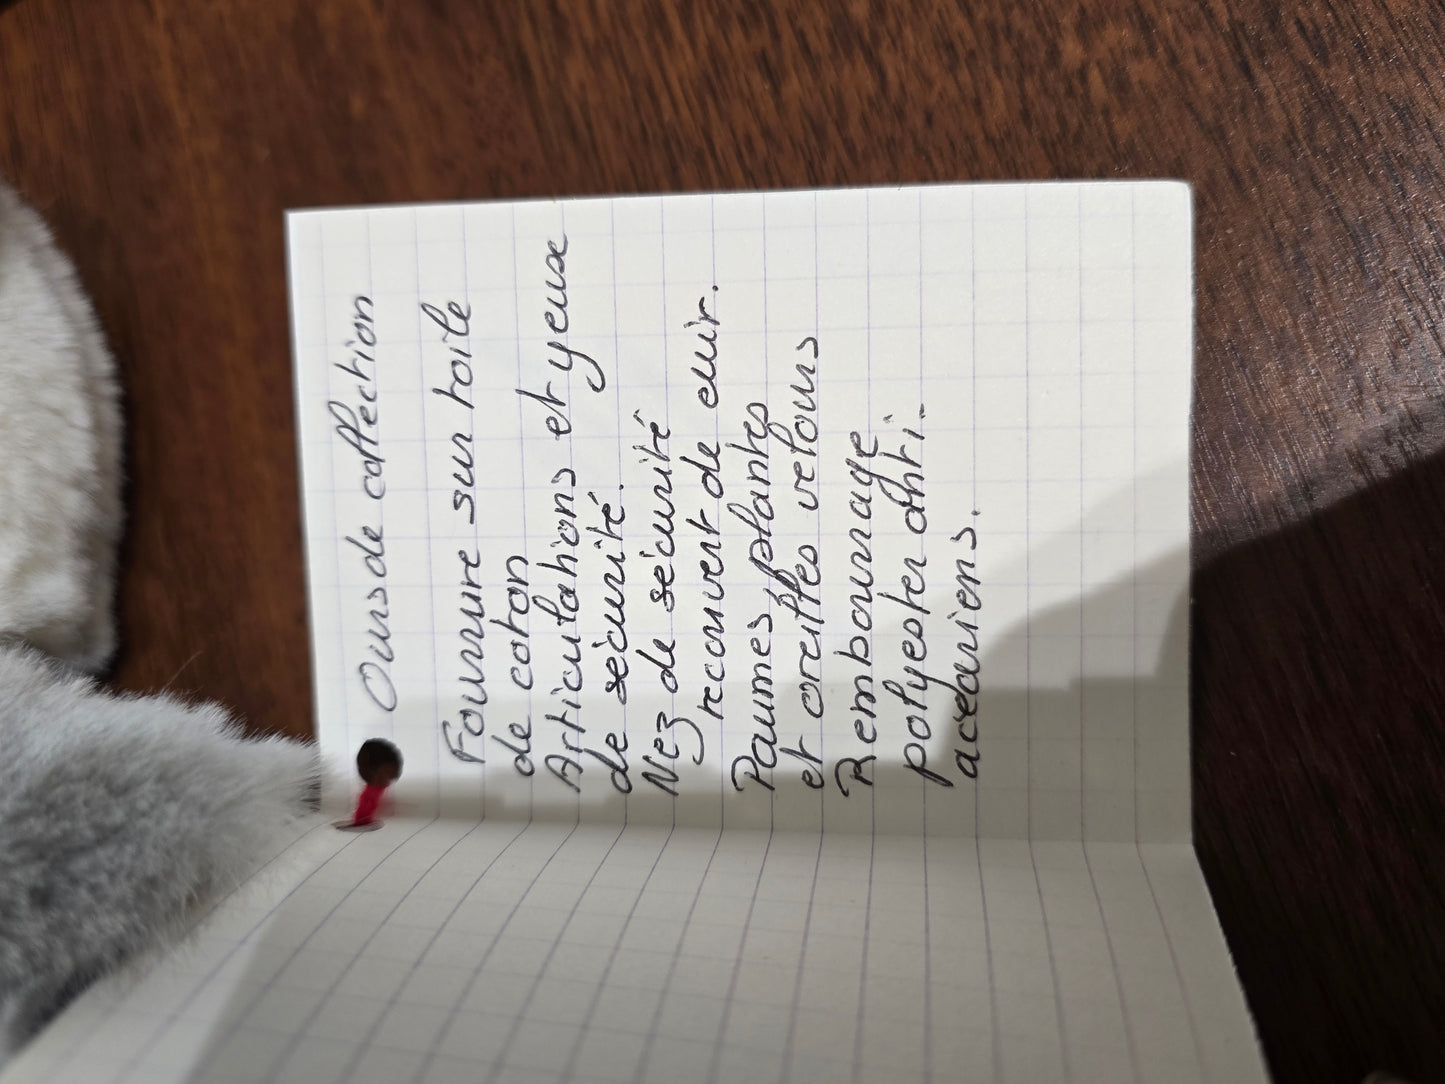 Ours de collection
Fourrure sur toile
de coton
Articulations et yeux
de sécurité.
Nez de sécurité
recouvert de cuir.
Paumes, plantes
et oreilles velours
Rembourrage
polyester anti-
acariens.